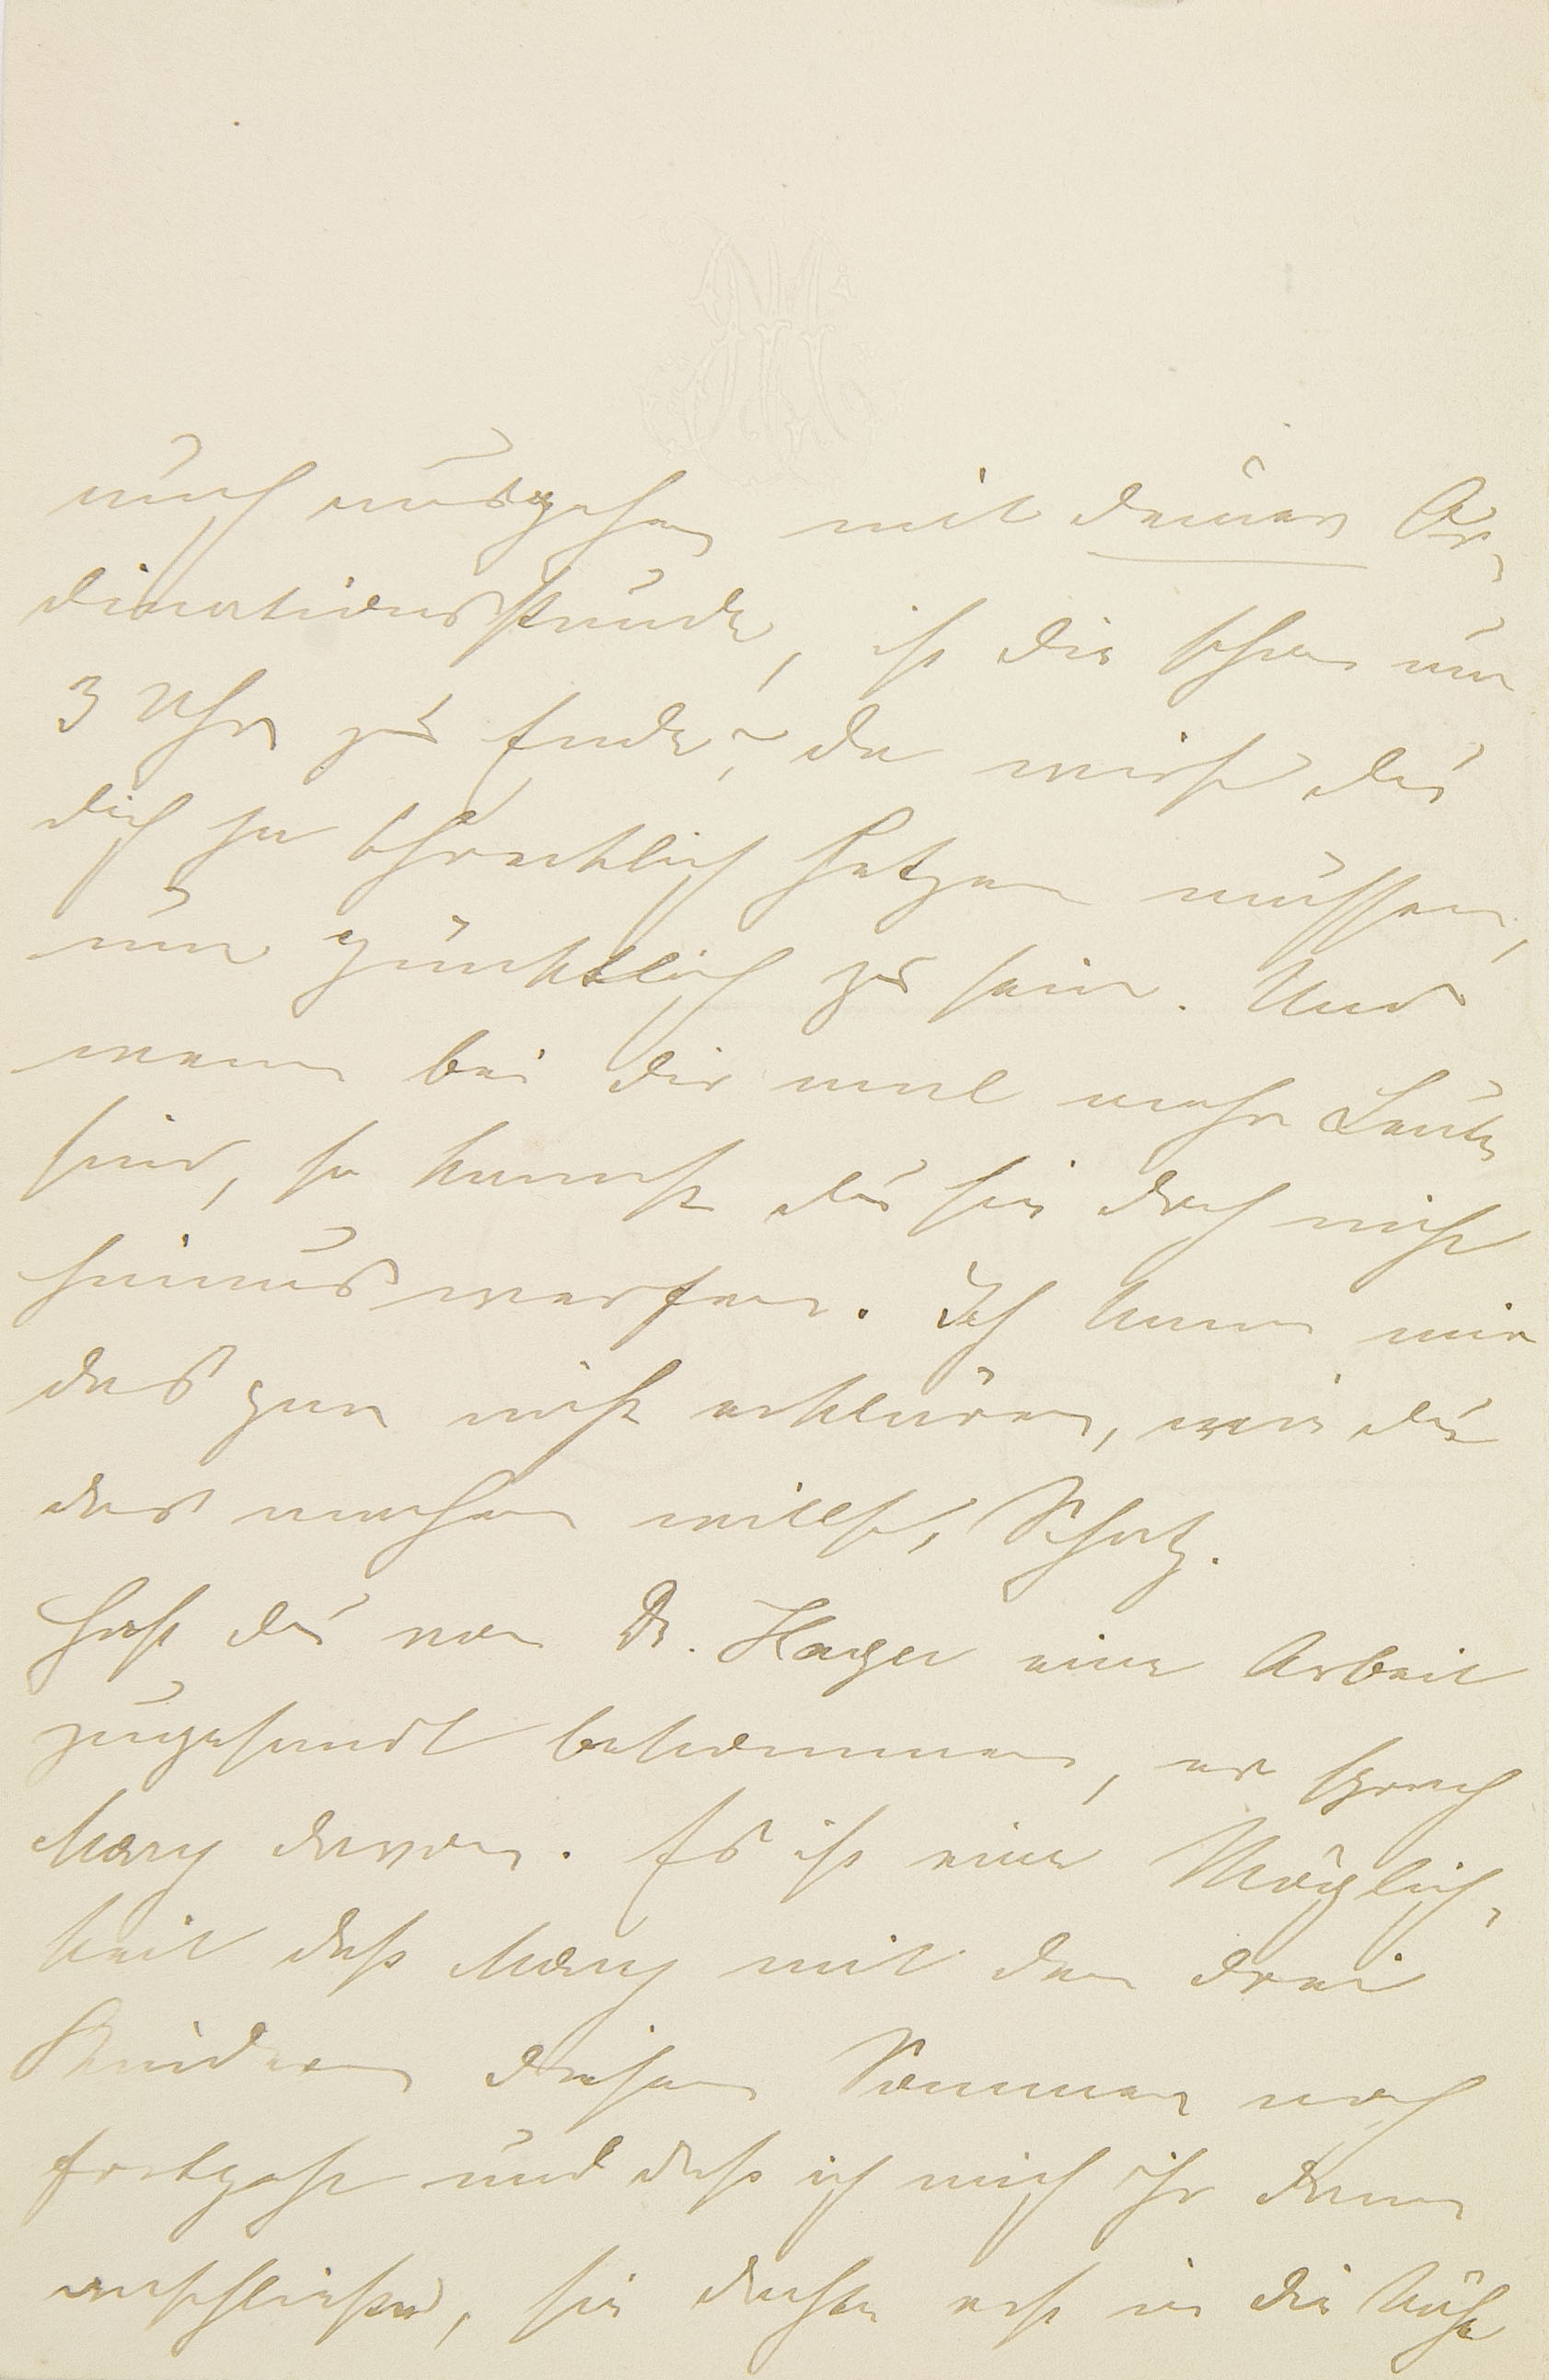 auch ausgehen mit deiner Or-
dinationsstunde, ist die schon um
3 Uhr zu Ende? da wirst du
dich ja schrecklich hetzen müssen,
um pünktlich zu sein. Und
wenn bei dir mal mehr Leute
sind, so kannst du sie doch nicht
hinauswerfen. Ich kann mir
das gar nicht erklären, wie du
das machen willst, Schatz.
Hast du von Dr. Hager eine Arbeit
zugesandt bekommen, er sprach
Mary davon. Es ist eine Möglich-
keit dass Mary mit den drei
Kindern diesen Sommer noch
fortgeht und dass ich mich ihr dann
anschliesse, sie dachte erst in die Nähe